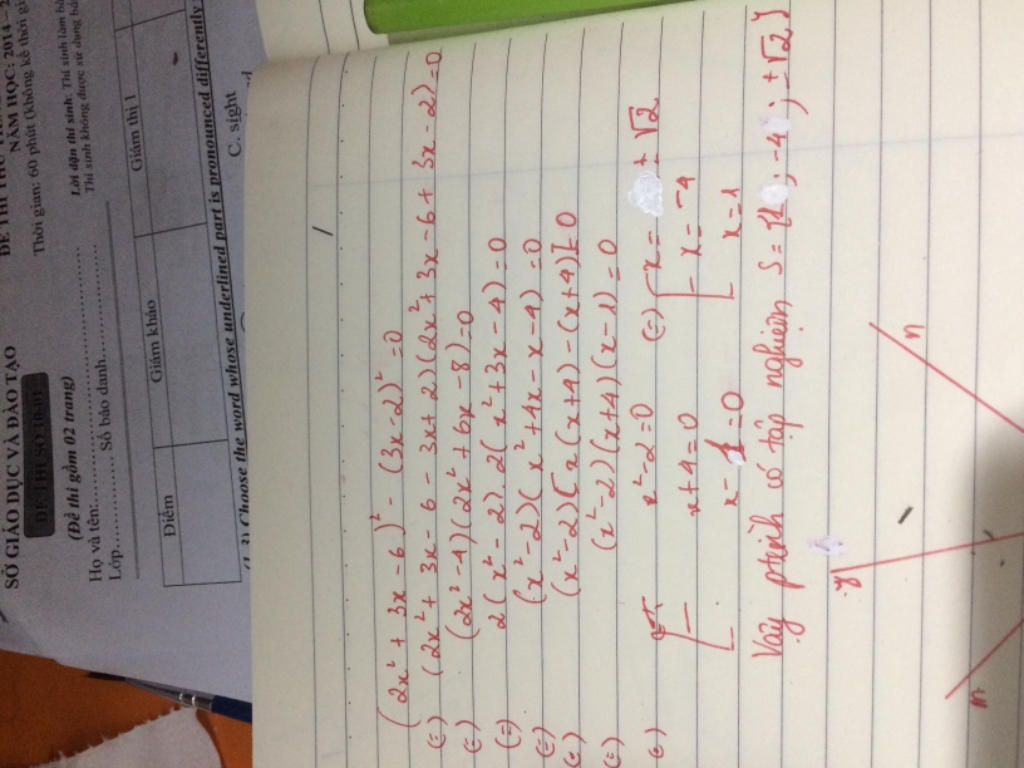 SỞ GIÁO DỤC VÀ ĐÀO TẠO
NĂM HỌC: 2014 - 2
(Đề thi gồm 02 trang)
Thời gian: 60 phút (Không kể thời gi
Họ và tên:
Lớp Số báo danh
Lời dặn thí sinh: Thí sinh làm bà
Thí sinh không được sử dụng bấ
Điểm Giám khảo Giám thị 1
Choose the word whose underlined part is pronounced differently
C. sight
(2x² + 3x - 6)² - (3x - 2)² = 0
(=) (2x² + 3x - 6 - 3x + 2)(2x² + 3x - 6 + 3x - 2) = 0
(=) (2x² - 4)(2x² + 6x - 8) = 0
(=) 2(x² - 2).2(x² + 3x - 4) = 0
(=) (x² - 2)(x² + 4x - x - 4) = 0
(=) (x² - 2)[x(x + 4) - (x + 4)] = 0
(=) (x² - 2)(x + 4)(x - 1) = 0
(=) x² - 2 = 0 (=) x = ± √2
x + 4 = 0 x = -4
x - 1 = 0 x = 1
Vậy phtrình có tập nghiệm S = {1; -4; ±√2}
y
n
m